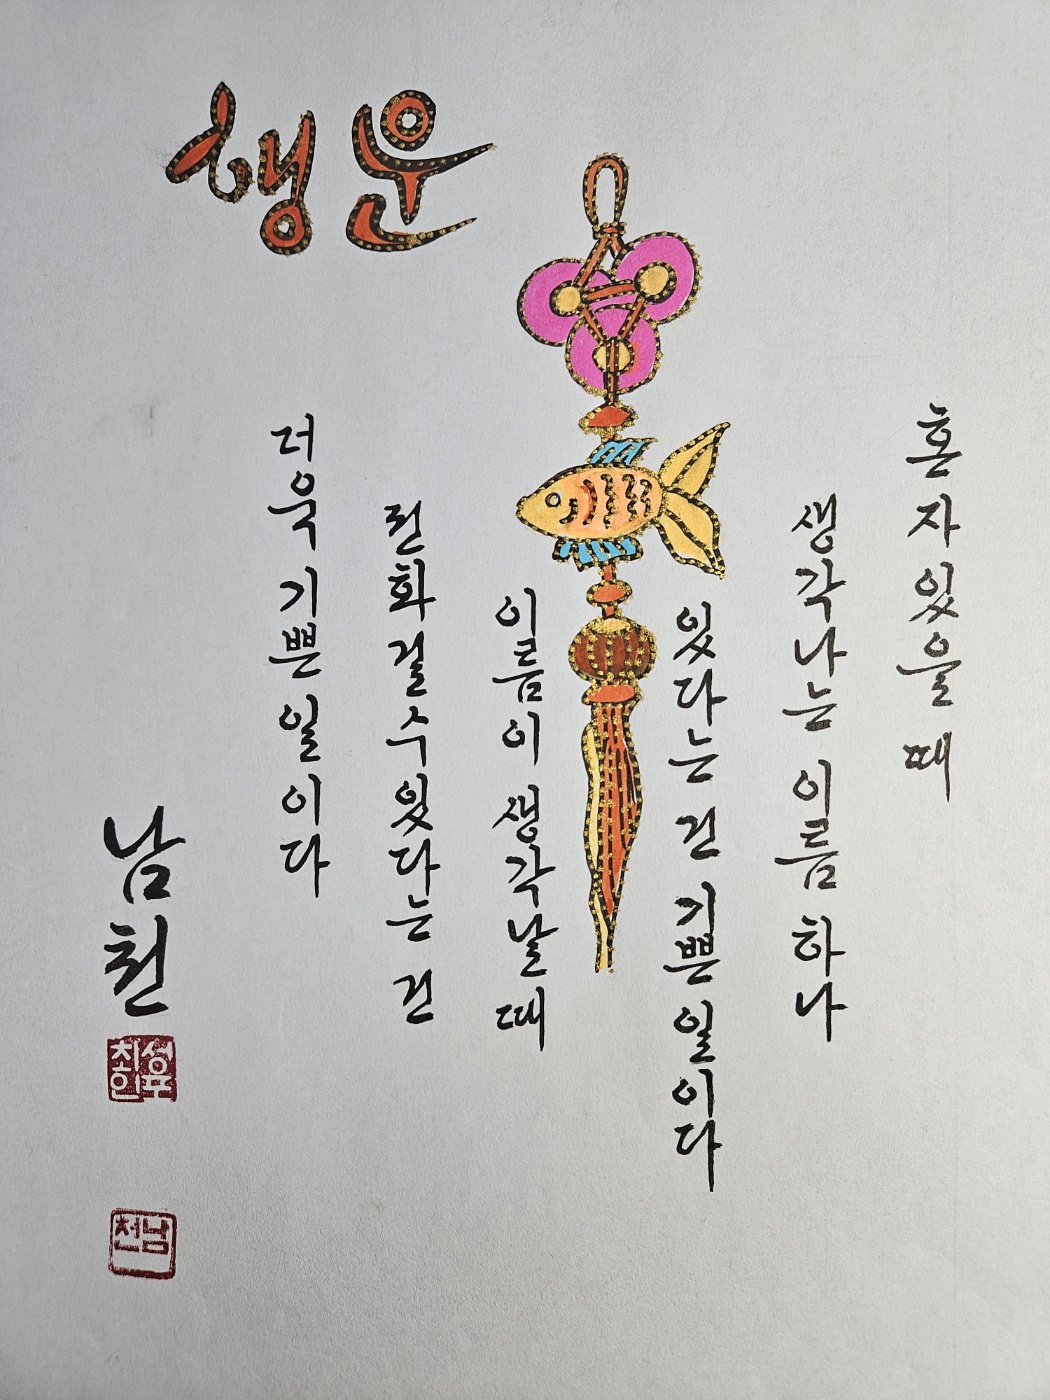 행운
혼자있을 때
생각나는 이름 하나
있다는 건 기쁜 일이다
이름이 생각날 때
전화걸수있다는 건
더욱 기쁜 일이다
남천
남천